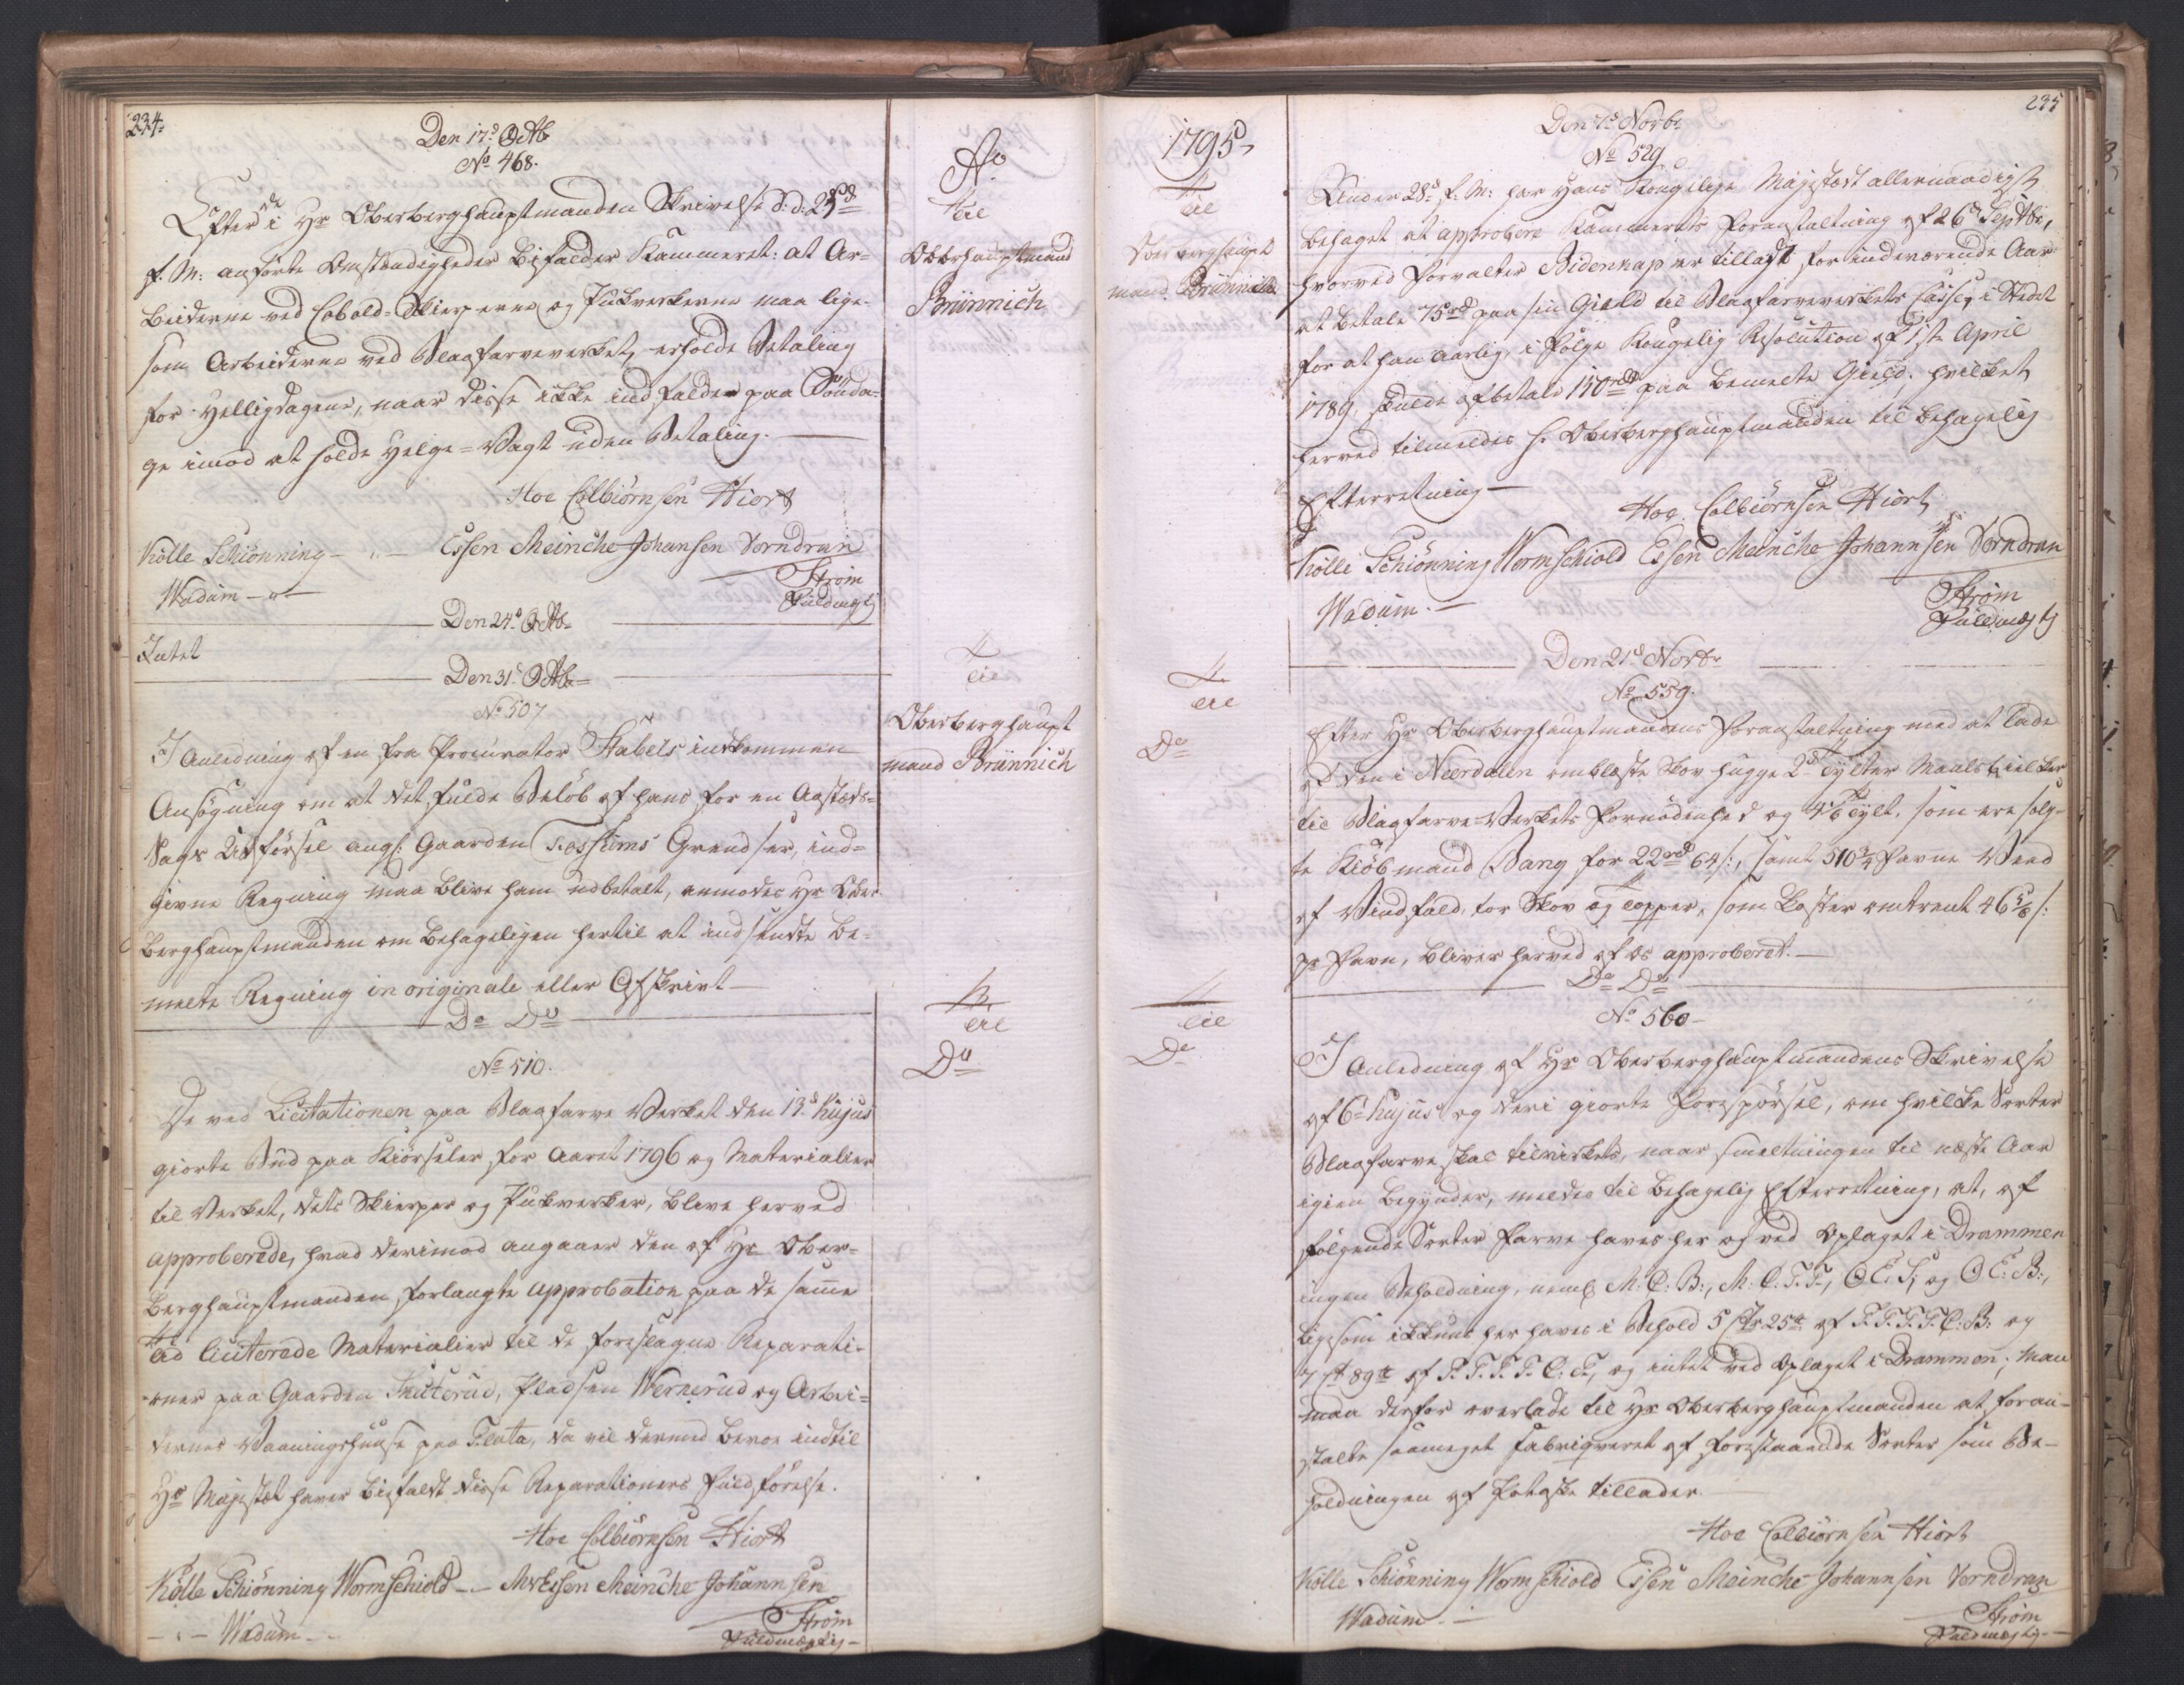 234.
Den 17de Octb
No 468.
Efter de i Hr Oberberghauptmanden Skrivelse d: d: 25d
f. M: anførte Omstændigheder bifalder Kammeret: at Ar=
beiderne ved Cobold=Skierperne og Pukverkerne maa lige-
som Arbeiderne ved Blaafarveverket, erholde Betaling
for Helligdagene, naar disse ikke indfalder paa Sønda=
ge imod at holde Helge=Vagt uden Betaling.
Hoe Colbiørnsen Hiort
Kölle Schiönning - " - Essen Meinche Johansen Vorndran
Wadum - " - Strøm
Fuldmægtig
Den 24d Octb
Intet
Den 31d Octb
No 507
I Anledning af en fra Procurator Stabels indkommen
Ansøgning om at det fulde Beløb af hans for en Aastæds=
Sags Udførsel angl: Gaarden Fossums Grendser, ind=
givne Regning maa blive ham udbetalt, anmodes Hr Ober
berghauptmanden om behageligen hertil at indsende be=
meldte Regning in originale eller Afskrivt
Do Do
No 510.
De ved Licitationen paa Blaafarve Verket den 13d hujus
giorte Bud paa Kiørseler for Aaret 1796 og Materialier
til Verket, dets Skierper og Pukverker, blive herved
approberede, hvad derimod angaaer den af Hr Ober=
berghauptmanden forlangte approbation paa de samme
Tid liciterede Materialier til de foreslagne Reparati-
oner paa Gaarden Skuterud, Pladsen Wernerud og Arbei=
dernes Vaaningshuuse paa Fluta, da vil dermed beroe indtil
Hs Majestæt haver bifaldt disse Reparationers Fuldførelse.
Hoe Colbiørnsen Hiort
Kölle Schiönning Wormschiold - " - Essen Meinche Johannsen
- " - Wadum - Strøm
Fuldmægtig
Ao
Til
Oberhauptmand
Brünnich
Til
Oberberghaupt
mand Brünnich
Til
Do
1795
Til
Oberberghaupt
mand Brünnich
Til
Do
Til
Do
235
Den 7d Novbr
No 529
Under 28d f. M: har Hans Kongelige Majestæt allernaadigst
behaget at approbere Kammerets Foranstaltning af 26d Septbr,
hvorved Forvalter Bidenkap er tilladt for indeværende Aar
at betale 75rd paa sin Gield til Blaafarveverkets Casse, i Stedet
for at han aarlig, i Følge Kongelig Resolution af 1ste April
1789, skulde afbetale 150rd paa bemelte Gield. hvilket
herved tilmeldes H. Oberberghauptmanden til behagelig
Efterretning
Hoe Colbiørnsen Hiort
Kölle Schiönning Wormschiold Essen Meinche Johannsen Vorndran
Wadum. - Strøm
Fuldmægtig
Den 21d Novbr
No 559.
Efter Hr Oberberghauptmandens Foranstaltning med at lade
af den i Neerdalen omblæste Skov hugge 2 Tylter
til Blaafarve=Verkets Fornødenhed og Tylt. som ere solg-
te Kiøbmand Bang for 22rd 64 s:, samt 510 3/4 Favne Veed
af Vindfald, tør Skov og Topper, som koster omtrent 46 5/6 s:
pr Favn, bliver herved af os approberet.
Do Do
No 560
I Anledning af Hr Oberberghauptmandens Skrivelse
af 6d hujus og deri giorte Forespørsel, om hvilke Sorter
Blaafarve skal tilvirkes, naar smeltningen til næste Aar
igien begynder, meldes til behagelig Efterretning, at, af
følgende Sorter Farve haves her og ved Oplaget i Drammen
ingen Beholdning, neml. M. C. B:, M. C. F. F., O. E. S, og O. E: B.,
ligesom ikkuns her haves i Behold 5 Ctr 25 af F. F. F. F. C: B: og
7 89 af F. F. F. F. C: F, og intet ved Oplaget i Drammen; Man
maa derfor overlade til Hr Oberberghauptmanden at foran-
stalte saameget fabriqveret af forestaaende Sorter som Be-
holdningen af Potaske tillader.
Hoe Colbiørnsen Hiort
Kölle Schiönning Wormschiold Essen Meinche Johannsen Vorndran
Wadum - Strøm
Fuldmægtig